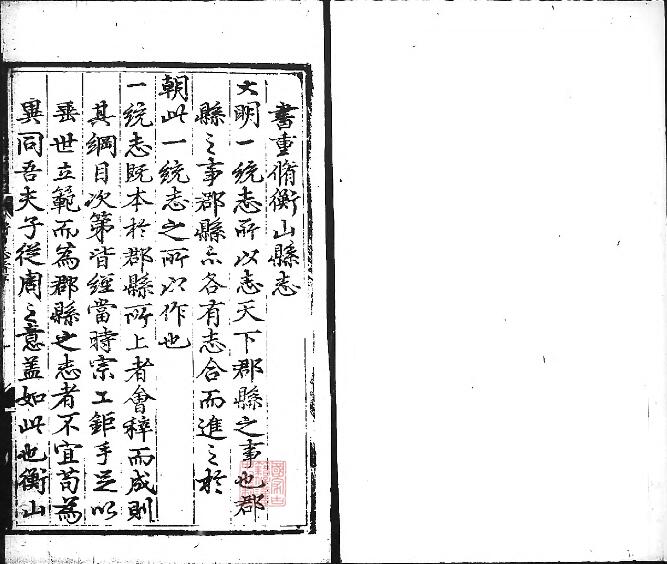 書重脩衡山縣志
大明一統志所以志天下郡縣之事也郡
縣之事郡縣亦各有志合而進之於
朝此一統志之所以作也
一統志既本於郡縣所上者會稡而成則
其綱目次第皆經當時宗工鉅手足以
垂世立範而為郡縣之志者不宜苟為
異同吾夫子從周之意蓋如此也衡山